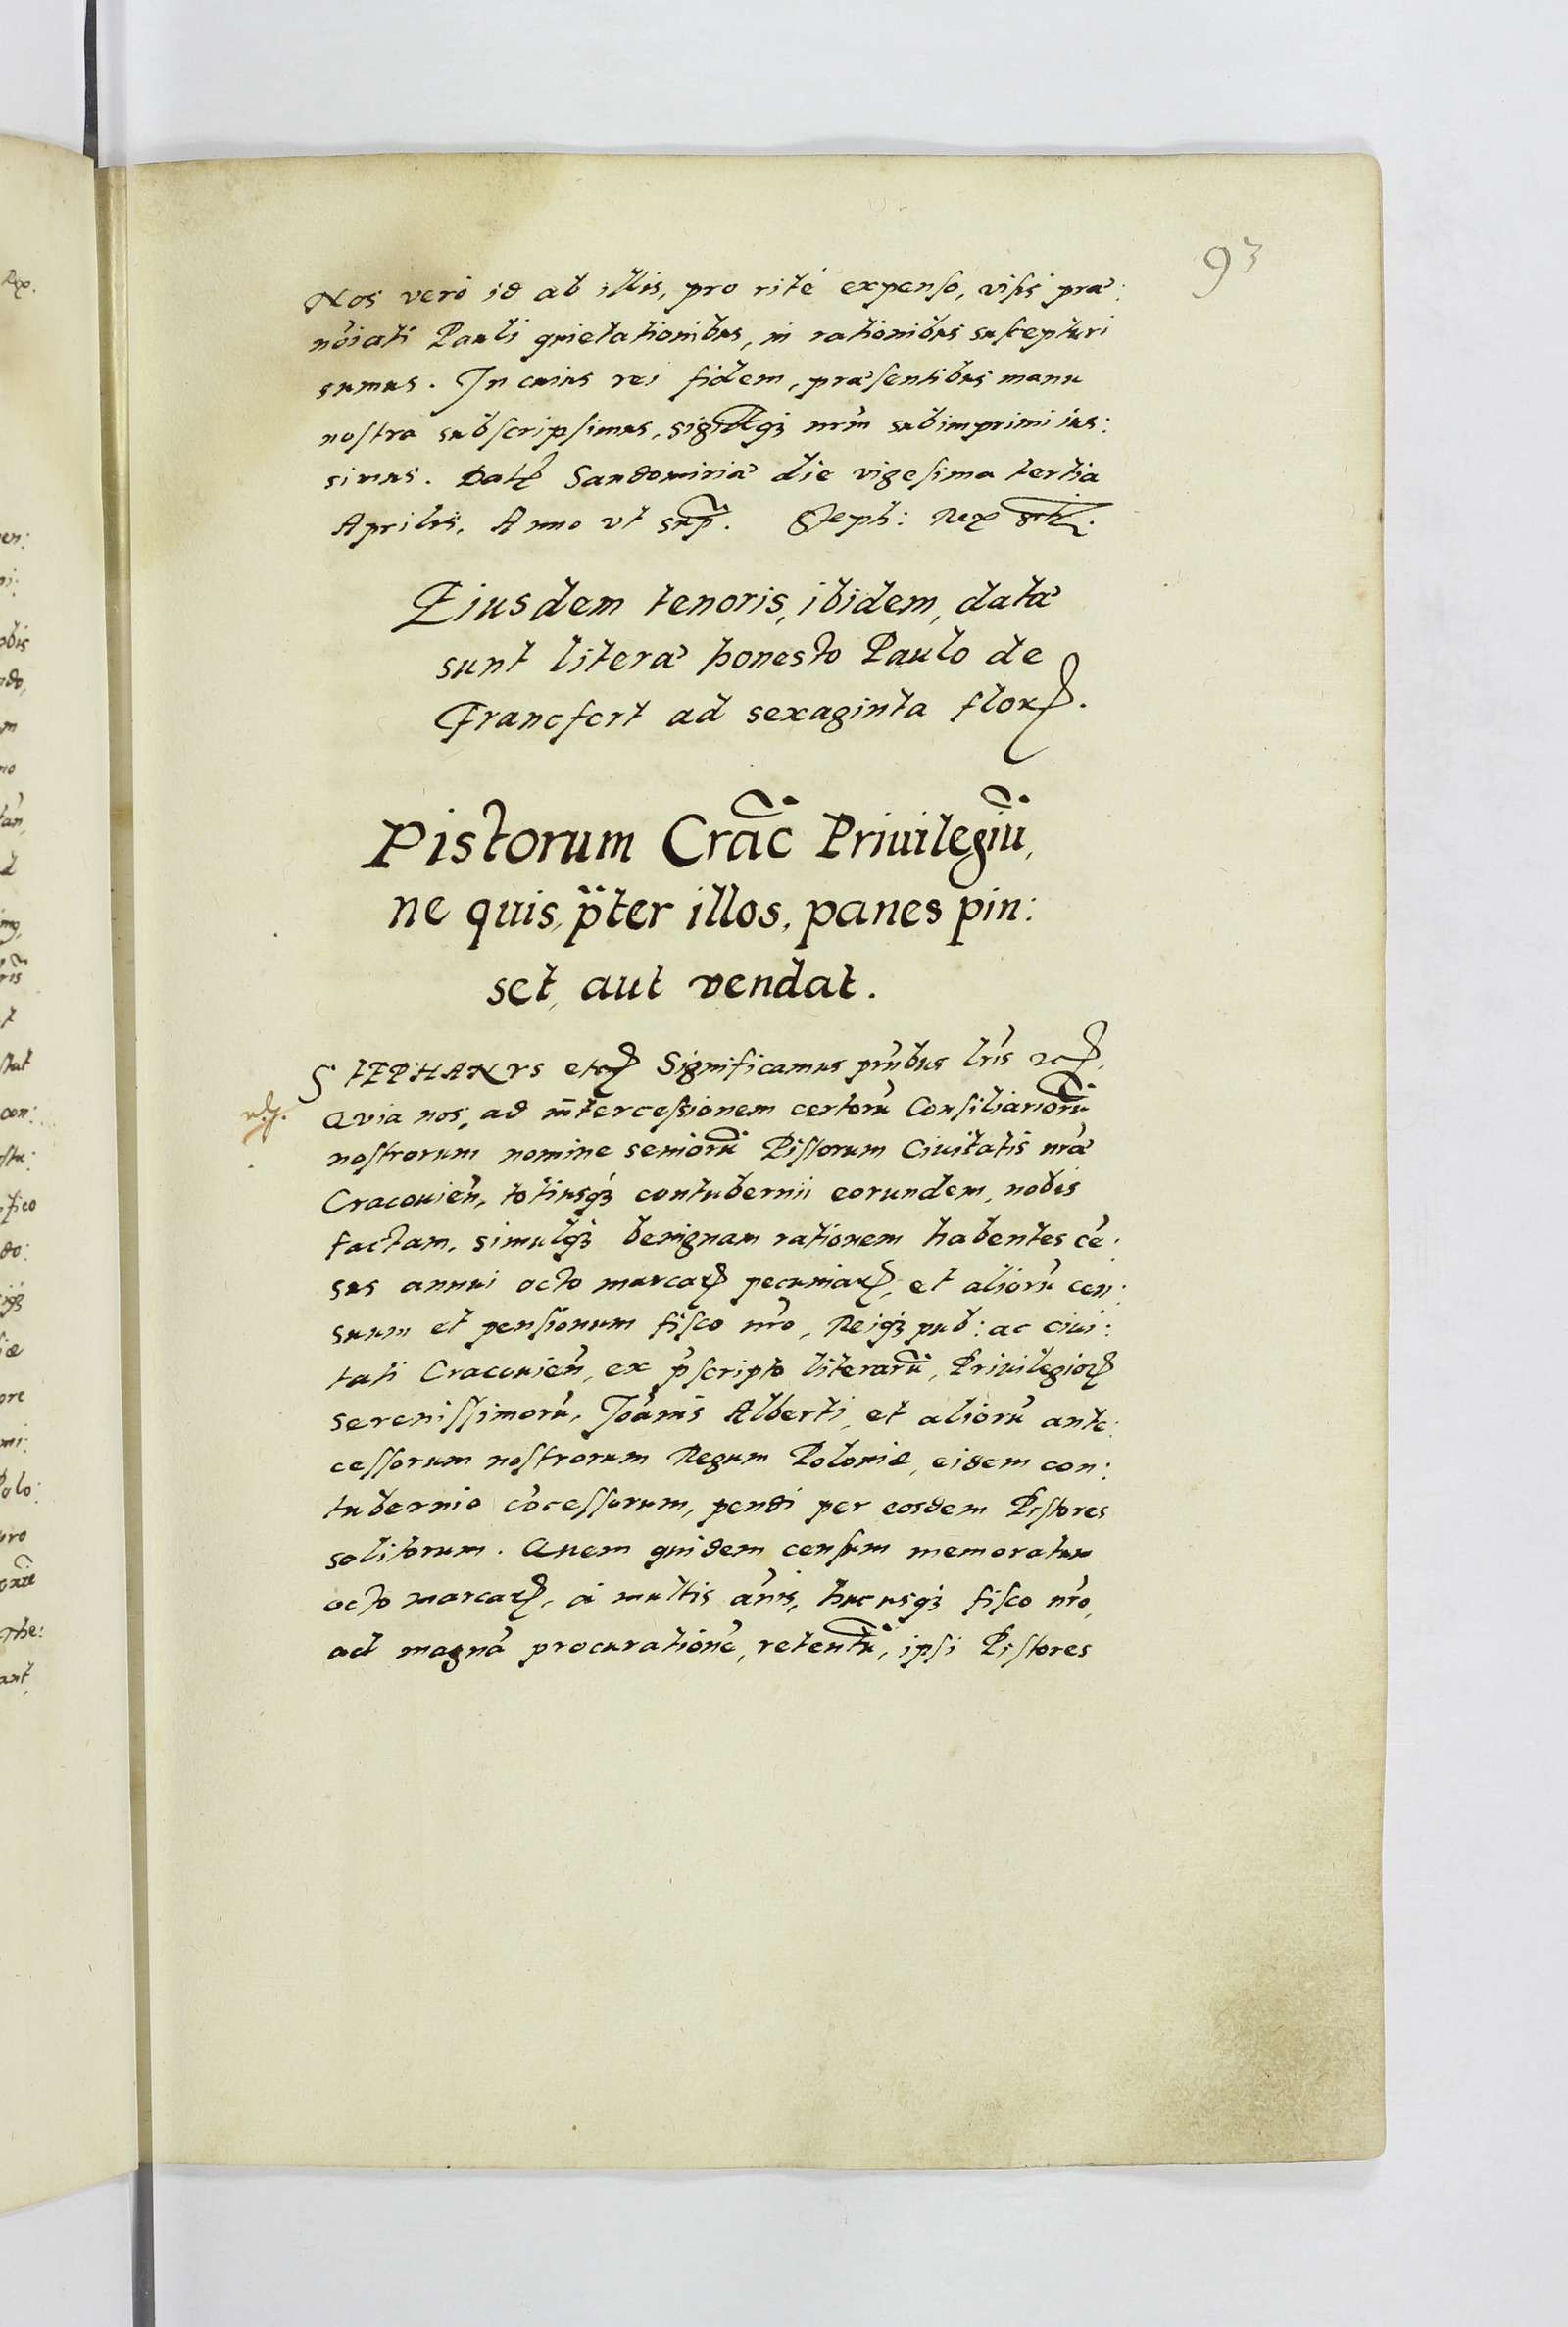 93
Nos verò id ab illis, pro rité expenso, visis præ:
nōiati Pauli quietationibus, in rationibus suscepturi
sumus. In cuius rei fidem, præsentibus manu
nostra subscripsimus, nrm̄ subimprimi ius:
simus. Sandomiriæ die vigesima tertia
Aprilis, Anno vt sup̄. Steph: Rex
Eiusdem tenoris, ibidem, datæ
sunt literæ honesto Paulo de
Francfort ad sexaginta
Pistorum Crac̄ Priuilegiū,
ne quis, p̄ter illos, panes pin:
set, aut vendat.
STEPHANVS Significamus pn̄tibus lr̄is
Quia nos, ad intercessionem certorū Consiliariorū
nostrorum nomine seniorū Pistorum Ciuitatis nr̄æ
Cracouien̄, totiusq́ʒ contubernii eorundem, nobis
factam, simulq́ʒ benignam rationem habentes cē:
sus annui octo marcarꝝ pecuniarꝝ, et aliorū cen:
suum et pensionum fisco nr̄o, Reiq́ʒ pub: ac ciui:
tati Cracouien̄, ex p̄scripto literarū, Priuilegiorꝝ
serenissimorū, Joān̄is Alberti, et aliorū ante:
cessorum nostrorum Regum Poloniæ, eidem con:
tubernio cōcessorum, pendi per eosdem Pistores
solitorum. Quem quidem censum memoratum
octo marcarꝝ, à multis an̄is, hucusq́ʒ fisco nr̄o,
ad magnā procurationē, retentū, ipsi Pistores